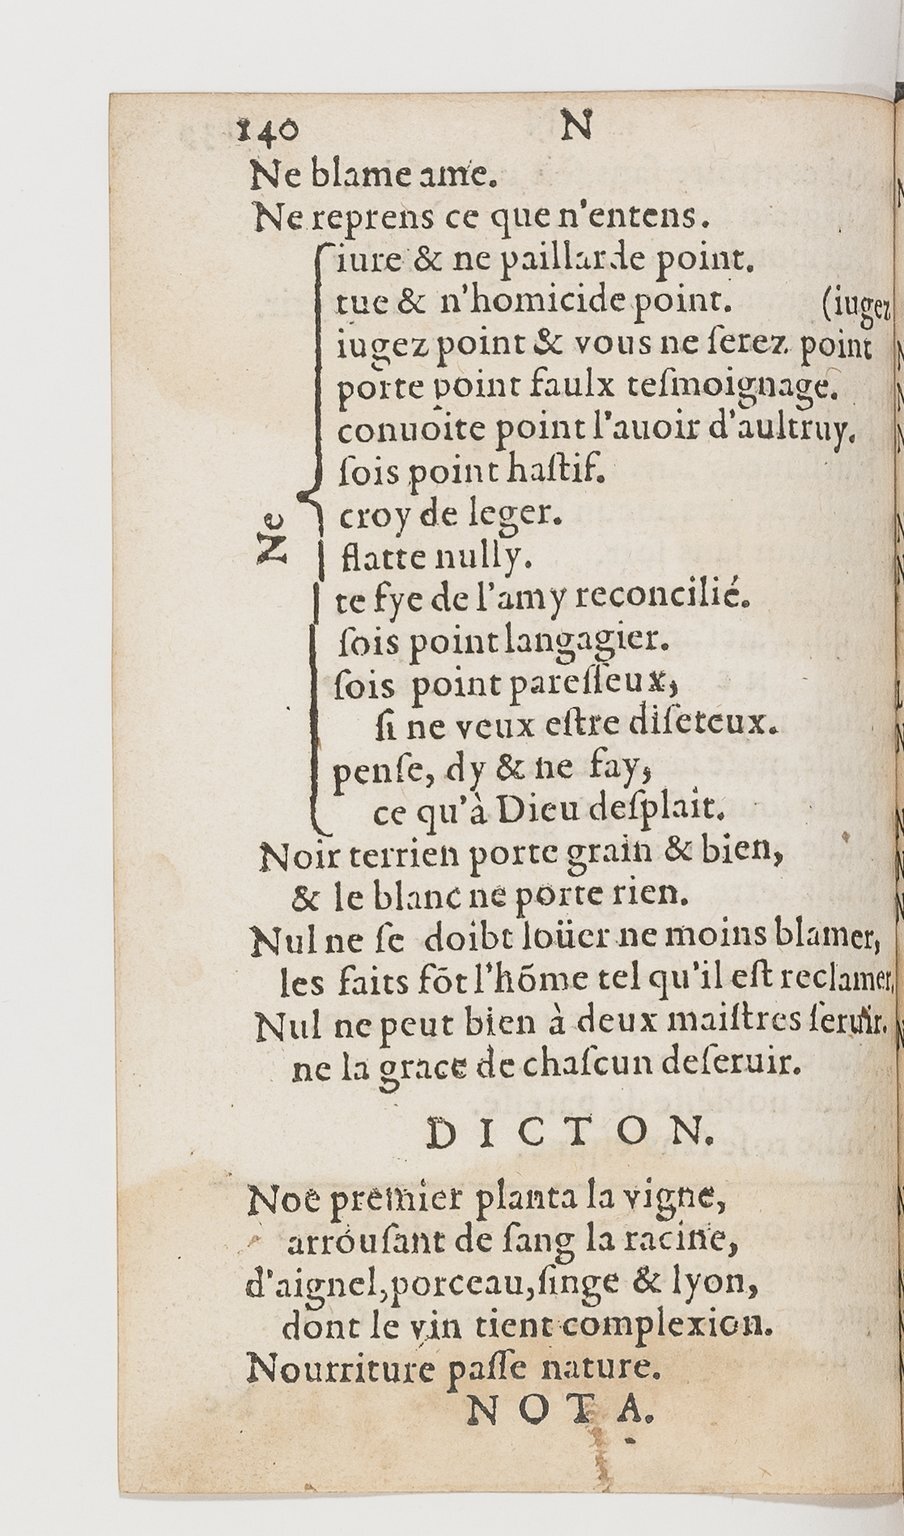 140 N
Ne blame ame.
Ne reprens ce que n'entens.
Ne
iure & ne paillarde point.
tue & n'homicide point. (iugez
iugez point & vous ne ſerez point
porte point faulx teſmoignage.
conuoite point l'auoir d'aultruy.
ſois point haſtif.
croy de leger.
flatte nully.
te fye de l'amy reconcilié.
ſois point langagier.
ſois point pareſſeux,
ſi ne veux eſtre diſeteux.
penſe, dy & ne fay,
ce qu'à Dieu deſplait.
Noir terrien porte grain & bien,
& le blanc ne porte rien.
Nul ne ſe doibt loüer ne moins blamer,
les faits fõt l'hõme tel qu'il eſt reclamer,
Nul ne peut bien à deux maiſtres ſeruir.
ne la grace de chaſcun deſeruir.
DICTON.
Noë premier planta la vigne,
arrouſant de ſang la racine,
d'aignel, porceau, ſinge & lyon,
dont le vin tient complexion.
Nourriture paſſe nature.
NOTA.